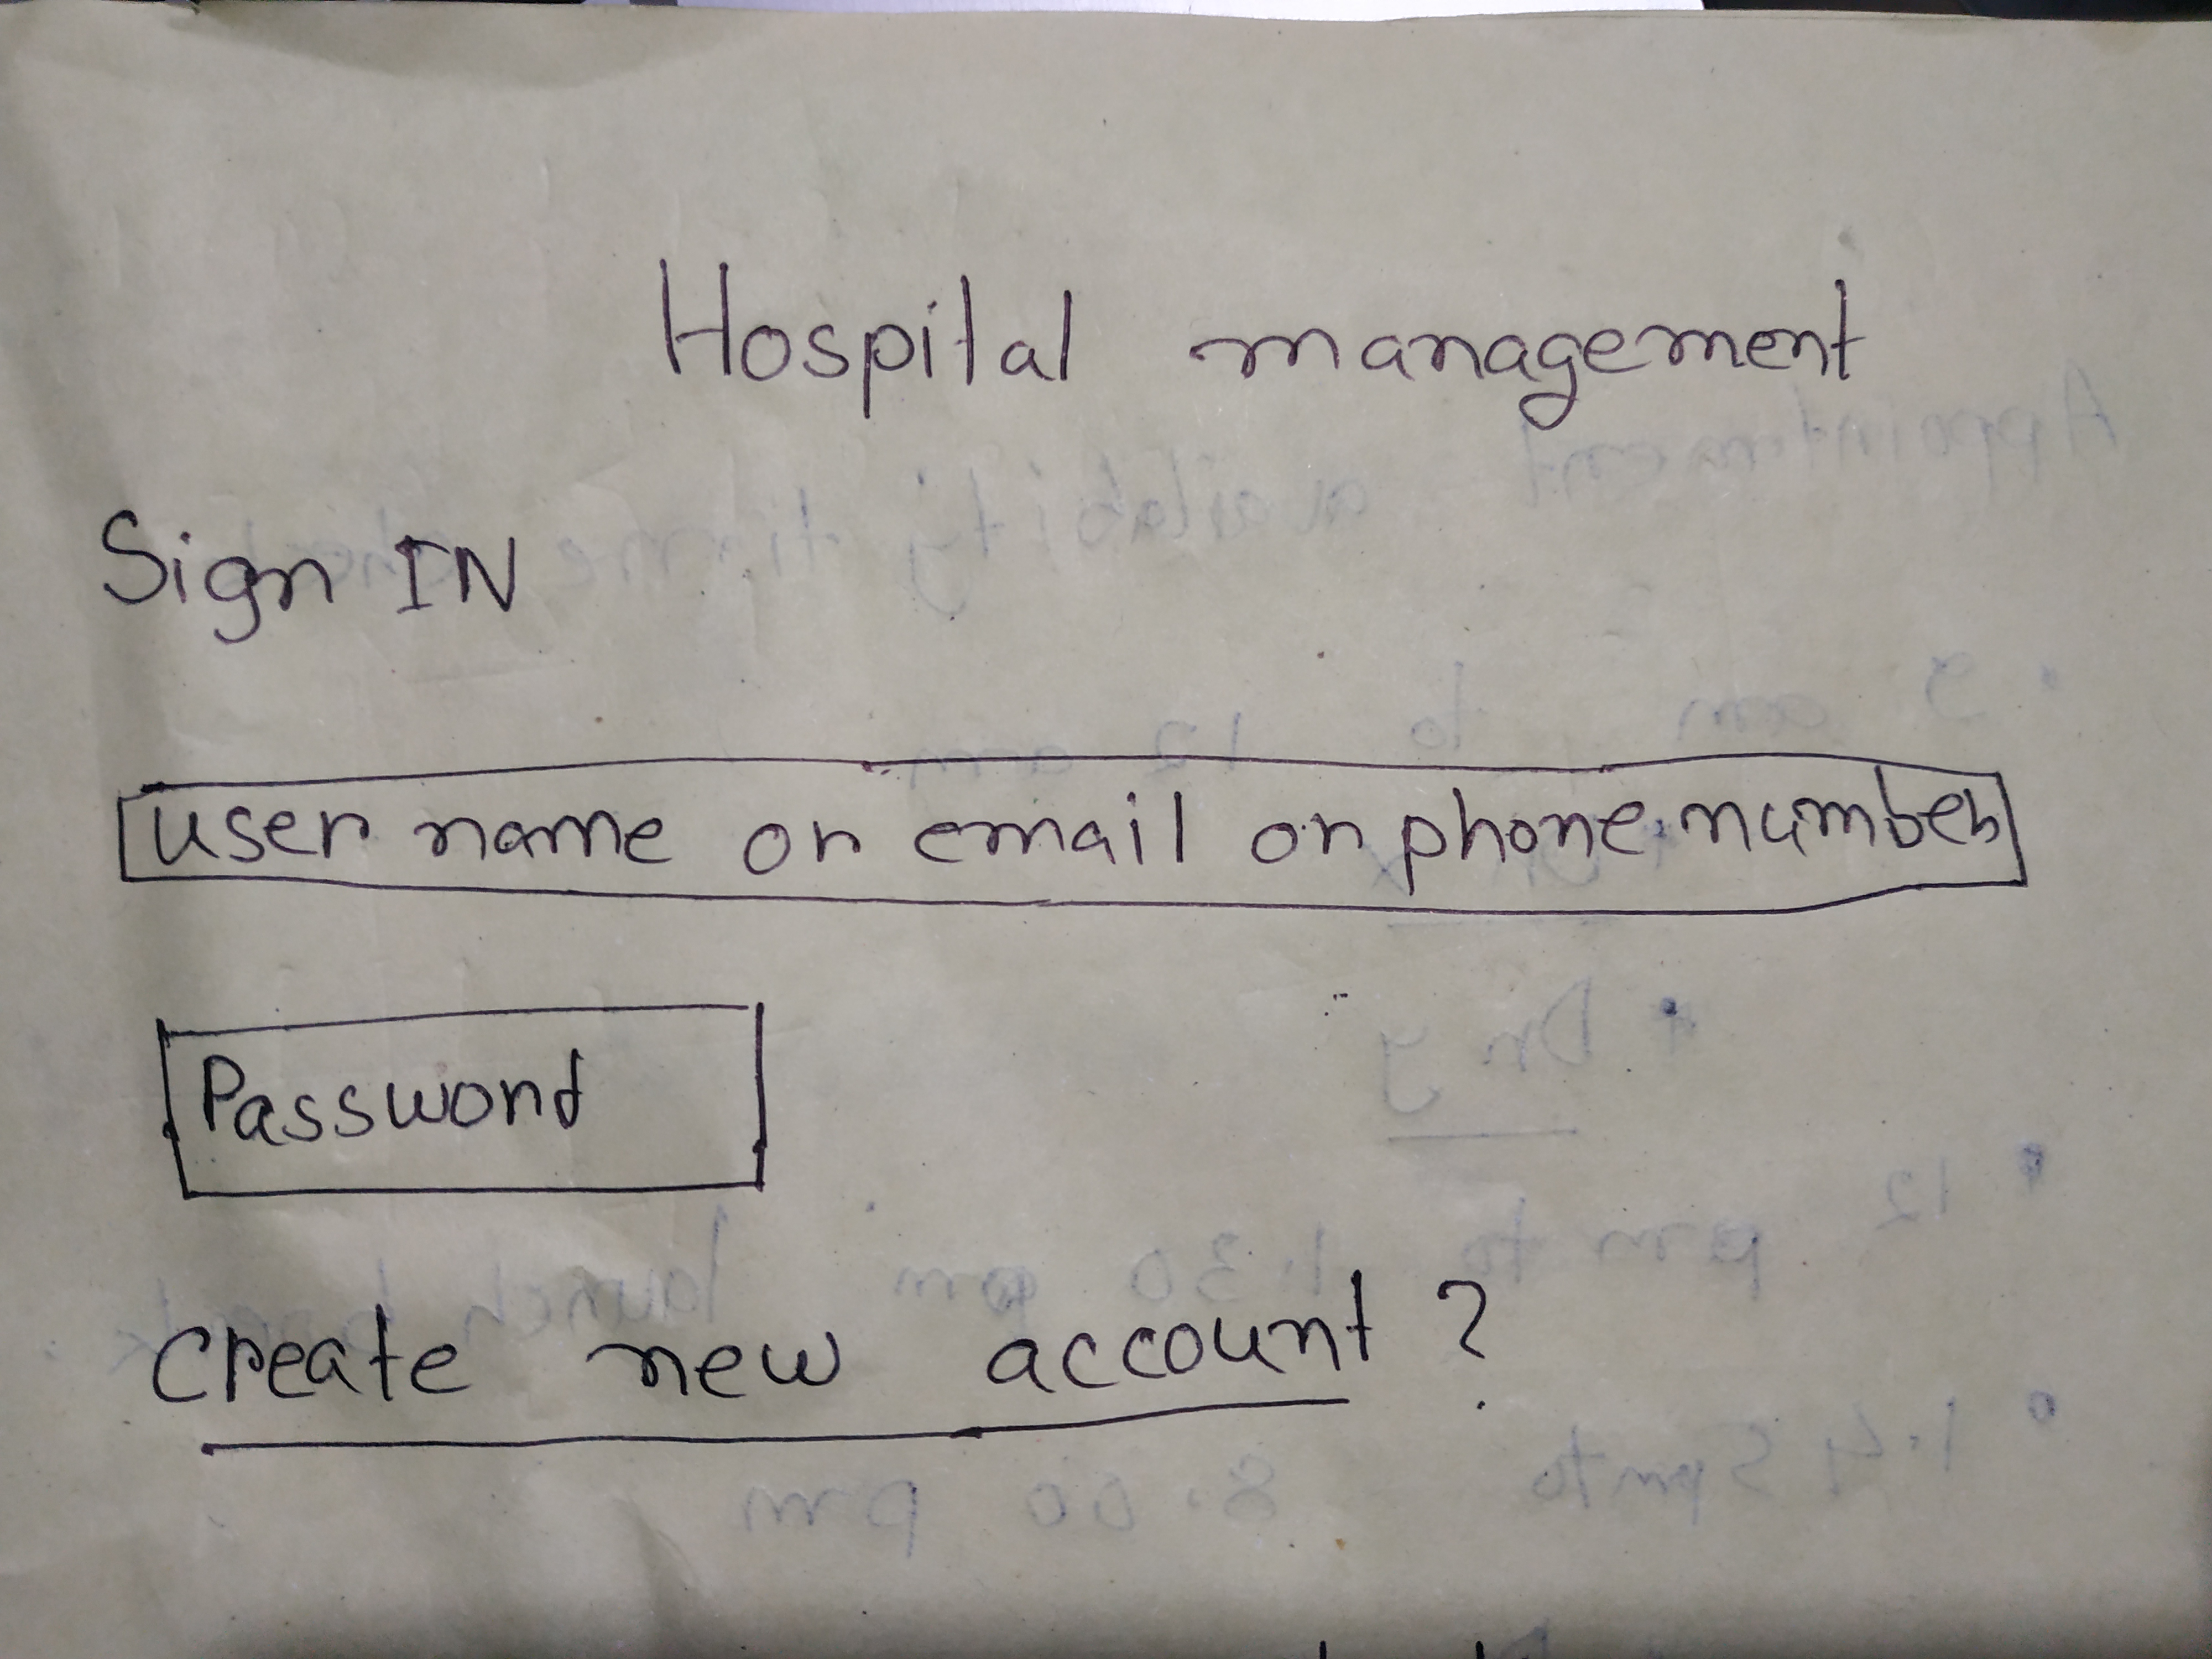 Hospital management
Sign IN
user name or email or phonenumber
Password
Create new account?